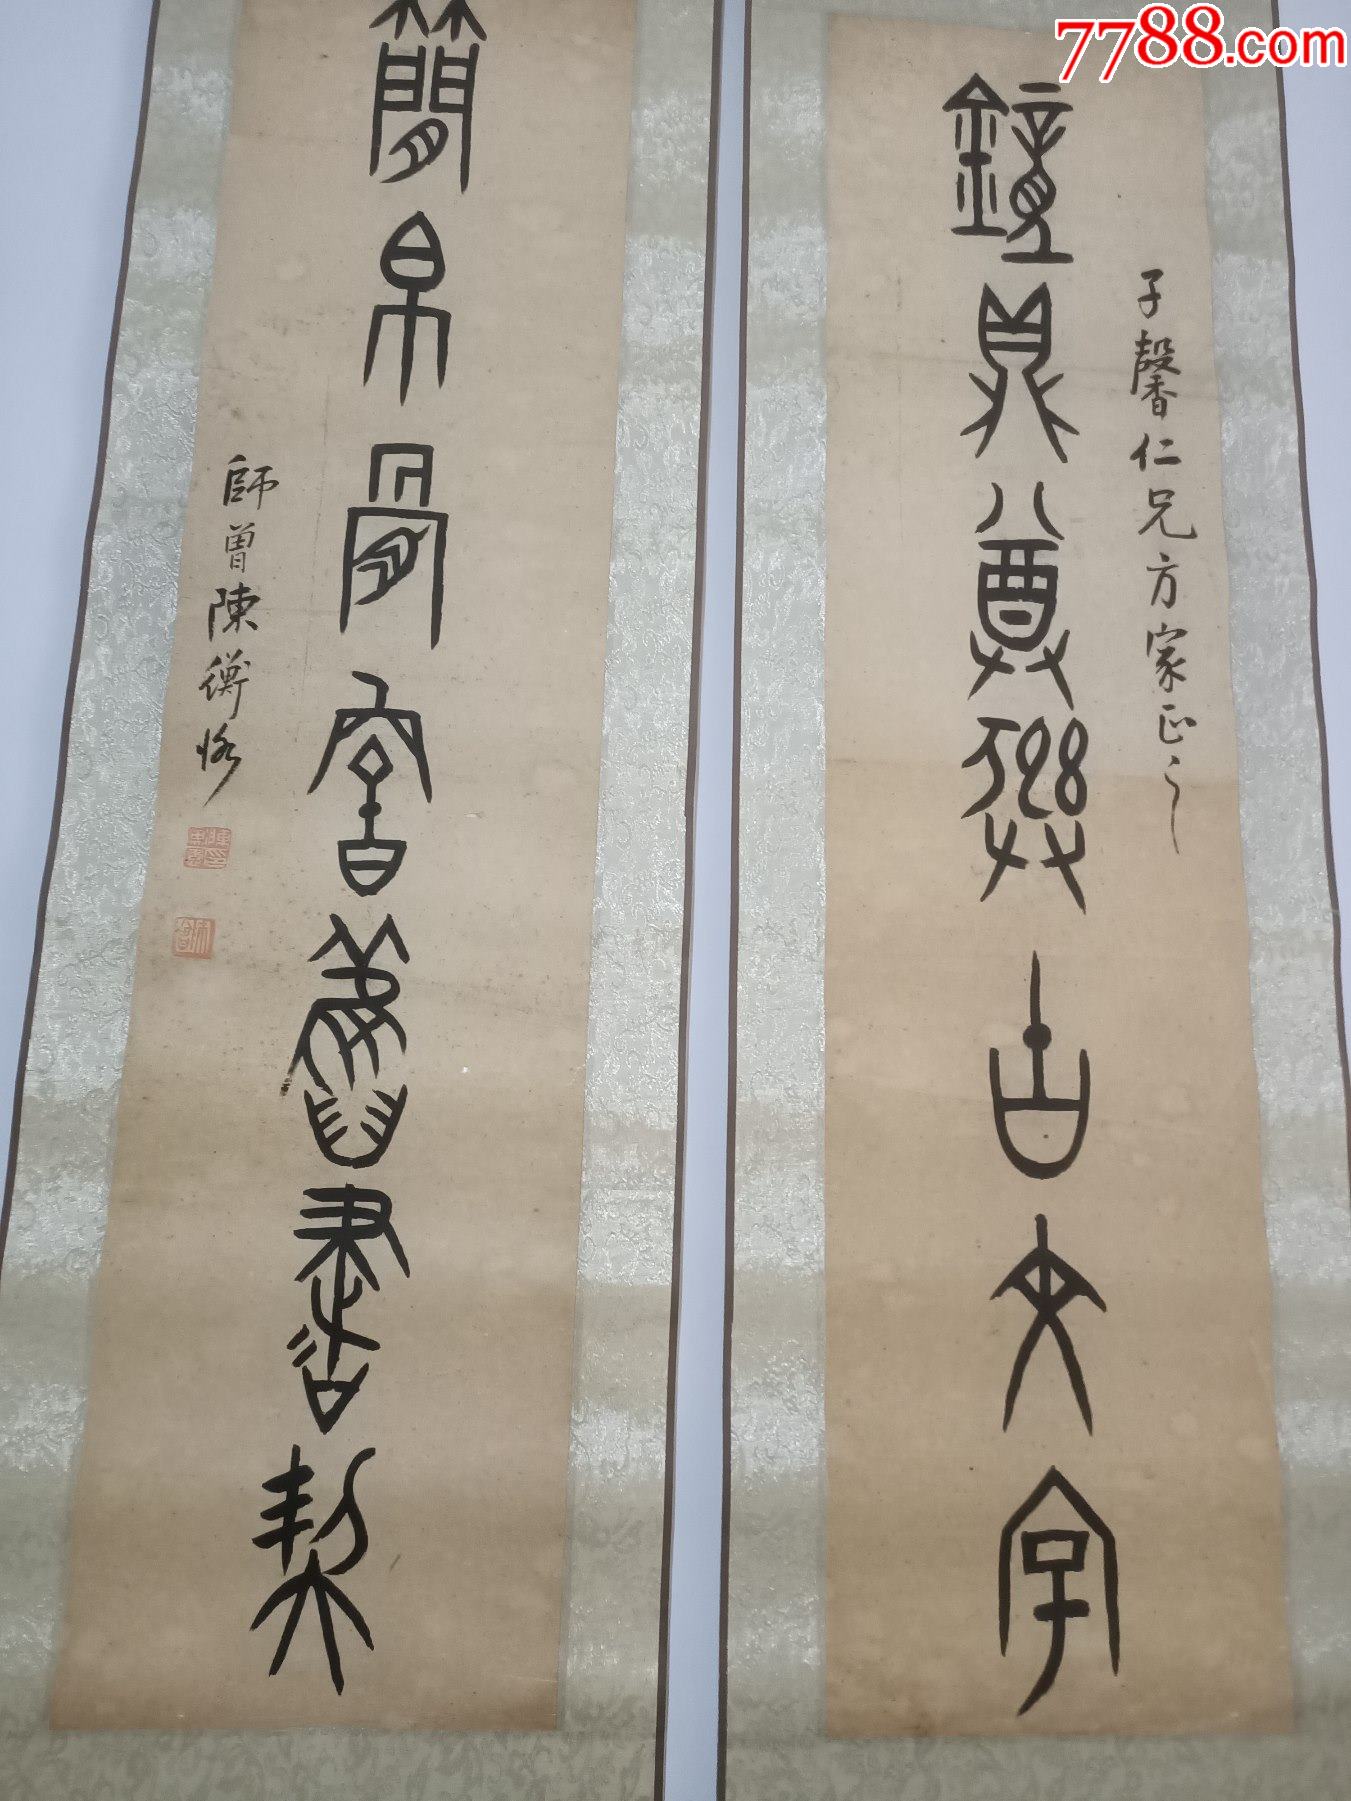 7788.com
子馨仁兄方家正之
鐘鼎尊彝古文字
簡帛骨舊書契
師曾陳衡恪